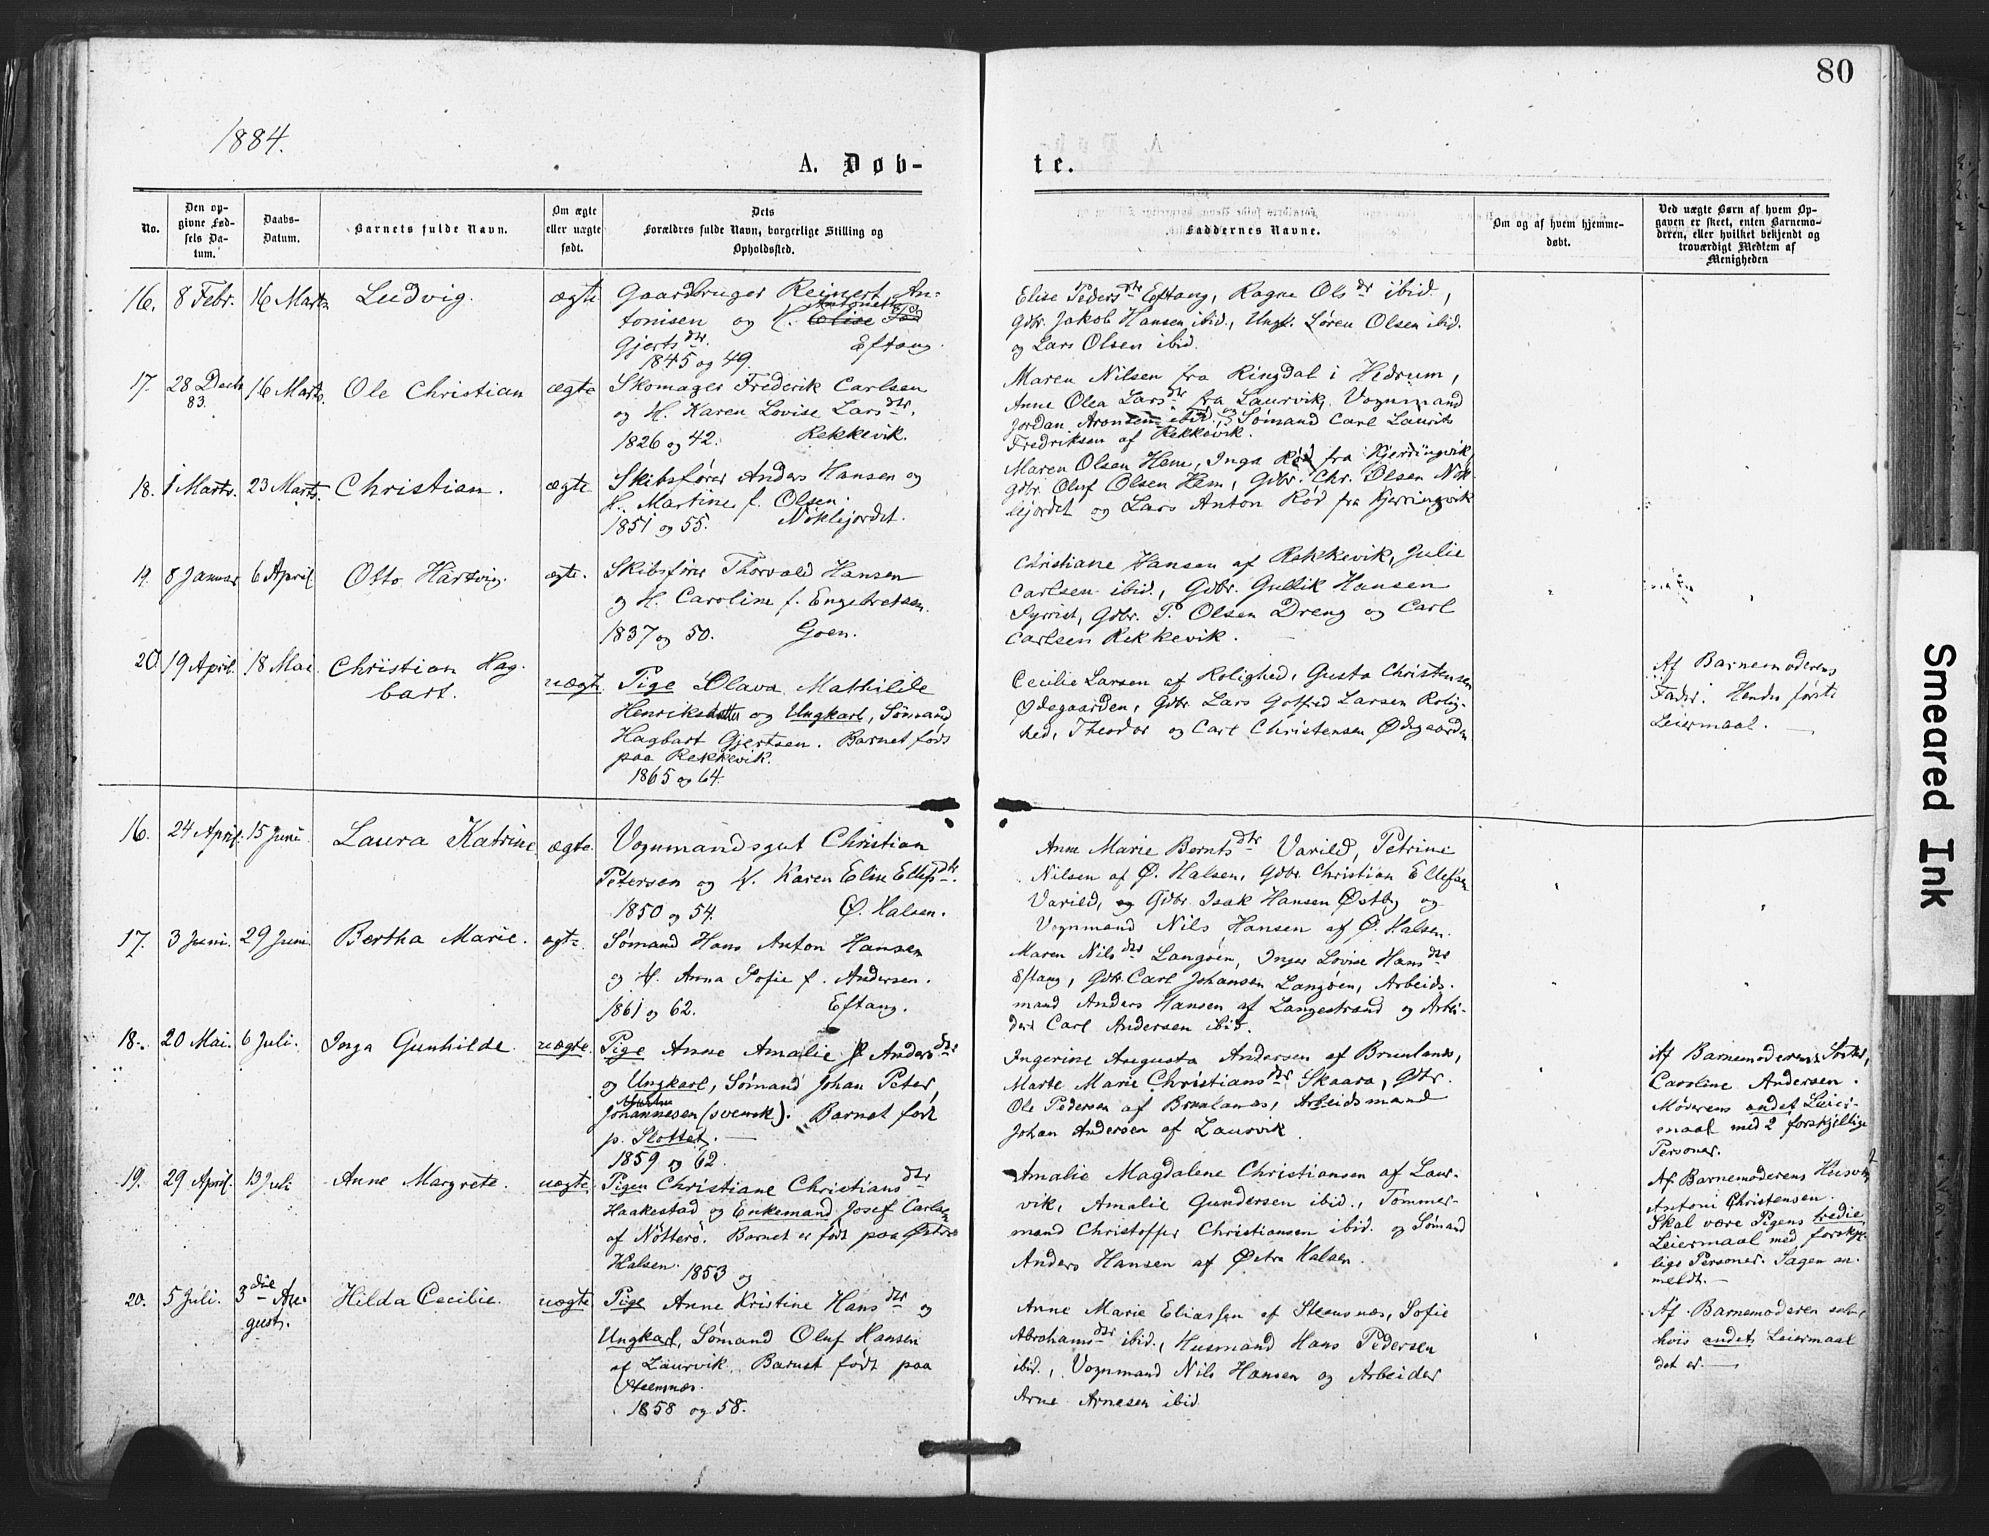 80
1884.
A. Døb-
te.
No.
Den op-
givne Fød-
sels Da-
tum.
Daabs-
Datum.
Barnets fulde Navn.
Om ægte
eller uægte
født.
Dets
Forældres fulde Navn, borgerlige Stilling og
Opholdssted.
Faddernes Navne.
Om og af hvem hjemme-
døbt.
Ved uægte Børn af hvem Op-
gaven er skeet, enten Barnemo-
deren, eller hvilket bekjendt og
troværdigt Medlem af
Menigheden
16. 8 Febr. 16 Marts Ludvig. ægte
Gaardbruger Reinert An-
tonisen og H. Elise
Antonette
Gjertsdtr. Eftang.
1845 og 49.
Elise Pedersdtr Eftang, Ragne Olsdr ibid.,
Gdbr. Jakob Hansen ibid., Ungk. Søren Olsen ibid.
og Lars Olsen ibid.
17. 28 Decb. 16 Marts. Ole Christian ægte
83.
Skomager Frederik Carlsen
og H. Karen Lovise Larsdtr.
1826 og 42. Rekkevik.
Maren Nilsen fra Ringdal i Hedrum,
Anne Olea Larsdtr fra Laurvik, Vognmand
Jordan Aronsen ibid., og Sømand Carl Laurits
Fredriksen af Rekkevik.
18. 1 Marts. 23 Marts. Christian. ægte
Skibsfører Anders Hansen og
H. Martine f. Olsen.
1851 og 55. Nøklejordet.
Maren Olsen Hem, Inga Rød fra Kjerringvik,
Gdbr. Oluf Olsen Hem, Gdbr. Chr. Olsen Nøk-
lejordet og Lars Anton Rød fra Kjerringvik
19. 8 Januar 6 April Otto Hartvig. ægte.
Skibsfører Thorvald Hansen
og H. Caroline f. Engebretsen.
1837 og 50. Goen.
Christiane Hansen af Rekkevik, Julie
Carlsen ibid., Gdbr. Gullik Hansen
Syrrist, Gdbr. P. Olsen Dreng og Carl
Carlsen Rekkevik.
20. 19 April. 18 Mai. Christian Hag-
bart. uægte
Pige Olava Mathilde
Henriksdatter og Ungkarl, Sømand
Hagbart Gjertsen. Barnet født
paa Rekkevik.
1865 og 64.
Cecilie Larsen af Rolighed, Gusta Christensen
Ødegaarden, Gdbr. Lars Gotfred Larsen Rolig-
hed, Theodor og Carl Christensen Ødegaarden
Af Barnemoderens
Fader. Hendes første
Leiermaal.
16. 24 April. 15 Juni. Laura Katrine ægte.
Vognmandsgut Christian
Petersen og H. Karen Elise Ellefsdtr.
1850 og 54. Ø. Halsen.
Anne Marie Berntsdtr Varild, Petrine
Nilsen af Ø. Halsen, Gdbr. Christian Ellefsen
Varild, og Gdbr. Isak Hansen Østby og
Vognmand Nils Hansen af Ø. Halsen.
17. 3 Juni. 29 Juni. Bertha Marie. ægte
Sømand Hans Anton Hansen
og H. Anna Sofie f. Andersen.
1861 og 62. Eftang.
Maren Nilsdtr Langøen, Inger Lovise Hansdtr
Eftang, Gdbr. Carl Johansen Langøen, Arbeids-
mand Anders Hansen af Langestrand og Arbei-
der Carl Andersen ibid.
18. 20 Mai. 6 Juli. Inga Gunhilde. uægte.
Pige Anne Amalie Andersdtr
og Ungkarl, Sømand Johan Peter
Johannesen (svensk). Barnet født
p. Slottet.
1859 og 62.
Ingerine Augusta Andersen af Brunlanes,
Marte Marie Christiansdtr Skaara, Gdbr.
Ole Pedersen af Brunlanes, Arbeidsmand
Johan Andersen af Laurvik.
Af Barnemoderens Søster,
Caroline Andersen.
Moderens andet Leier-
maal med 2 forskjellige
Personer.
19. 29 April. 13 Juli Anne Margrete. uægte.
Pigen Christiane Christiansdtr
Haakestad og Enkemand Josef Carlsen
af Nötterö. Barnet er født paa Østre
Halsen. 1853 og
Amalie Magdalene Christiansen af Laur-
vik, Amalie Gundersen ibid., Tømmer-
mand Christoffer Christiansen ibid. og Sømand
Anders Hansen af Østre Halsen.
Af Barnemoderens
Antoni Christensen.
Skal være Pigens tredie
Leiermaal med forskjel-
lige Personer. Sagen an-
meldt.
20. 5 Juli. 3die Au-
gust. Hilda Cecilie. uægte
Pige Anne Kristine Hansdtr og
Ungkarl, Sømand Oluf Hansen
af Laurvik. Barnet født paa
Steensnæs.
1858 og 58.
Anne Marie Eliassen af Steensnæs, Sofie
Abrahamsdtr ibid., Husmand Hans Pedersen
ibid., Vognmand Nils Hansen og Arbeider
Arne Arnesen ibid.
Af Barnemoderen selv,
hvis andet Leiermaal
det er.
Smeared Ink